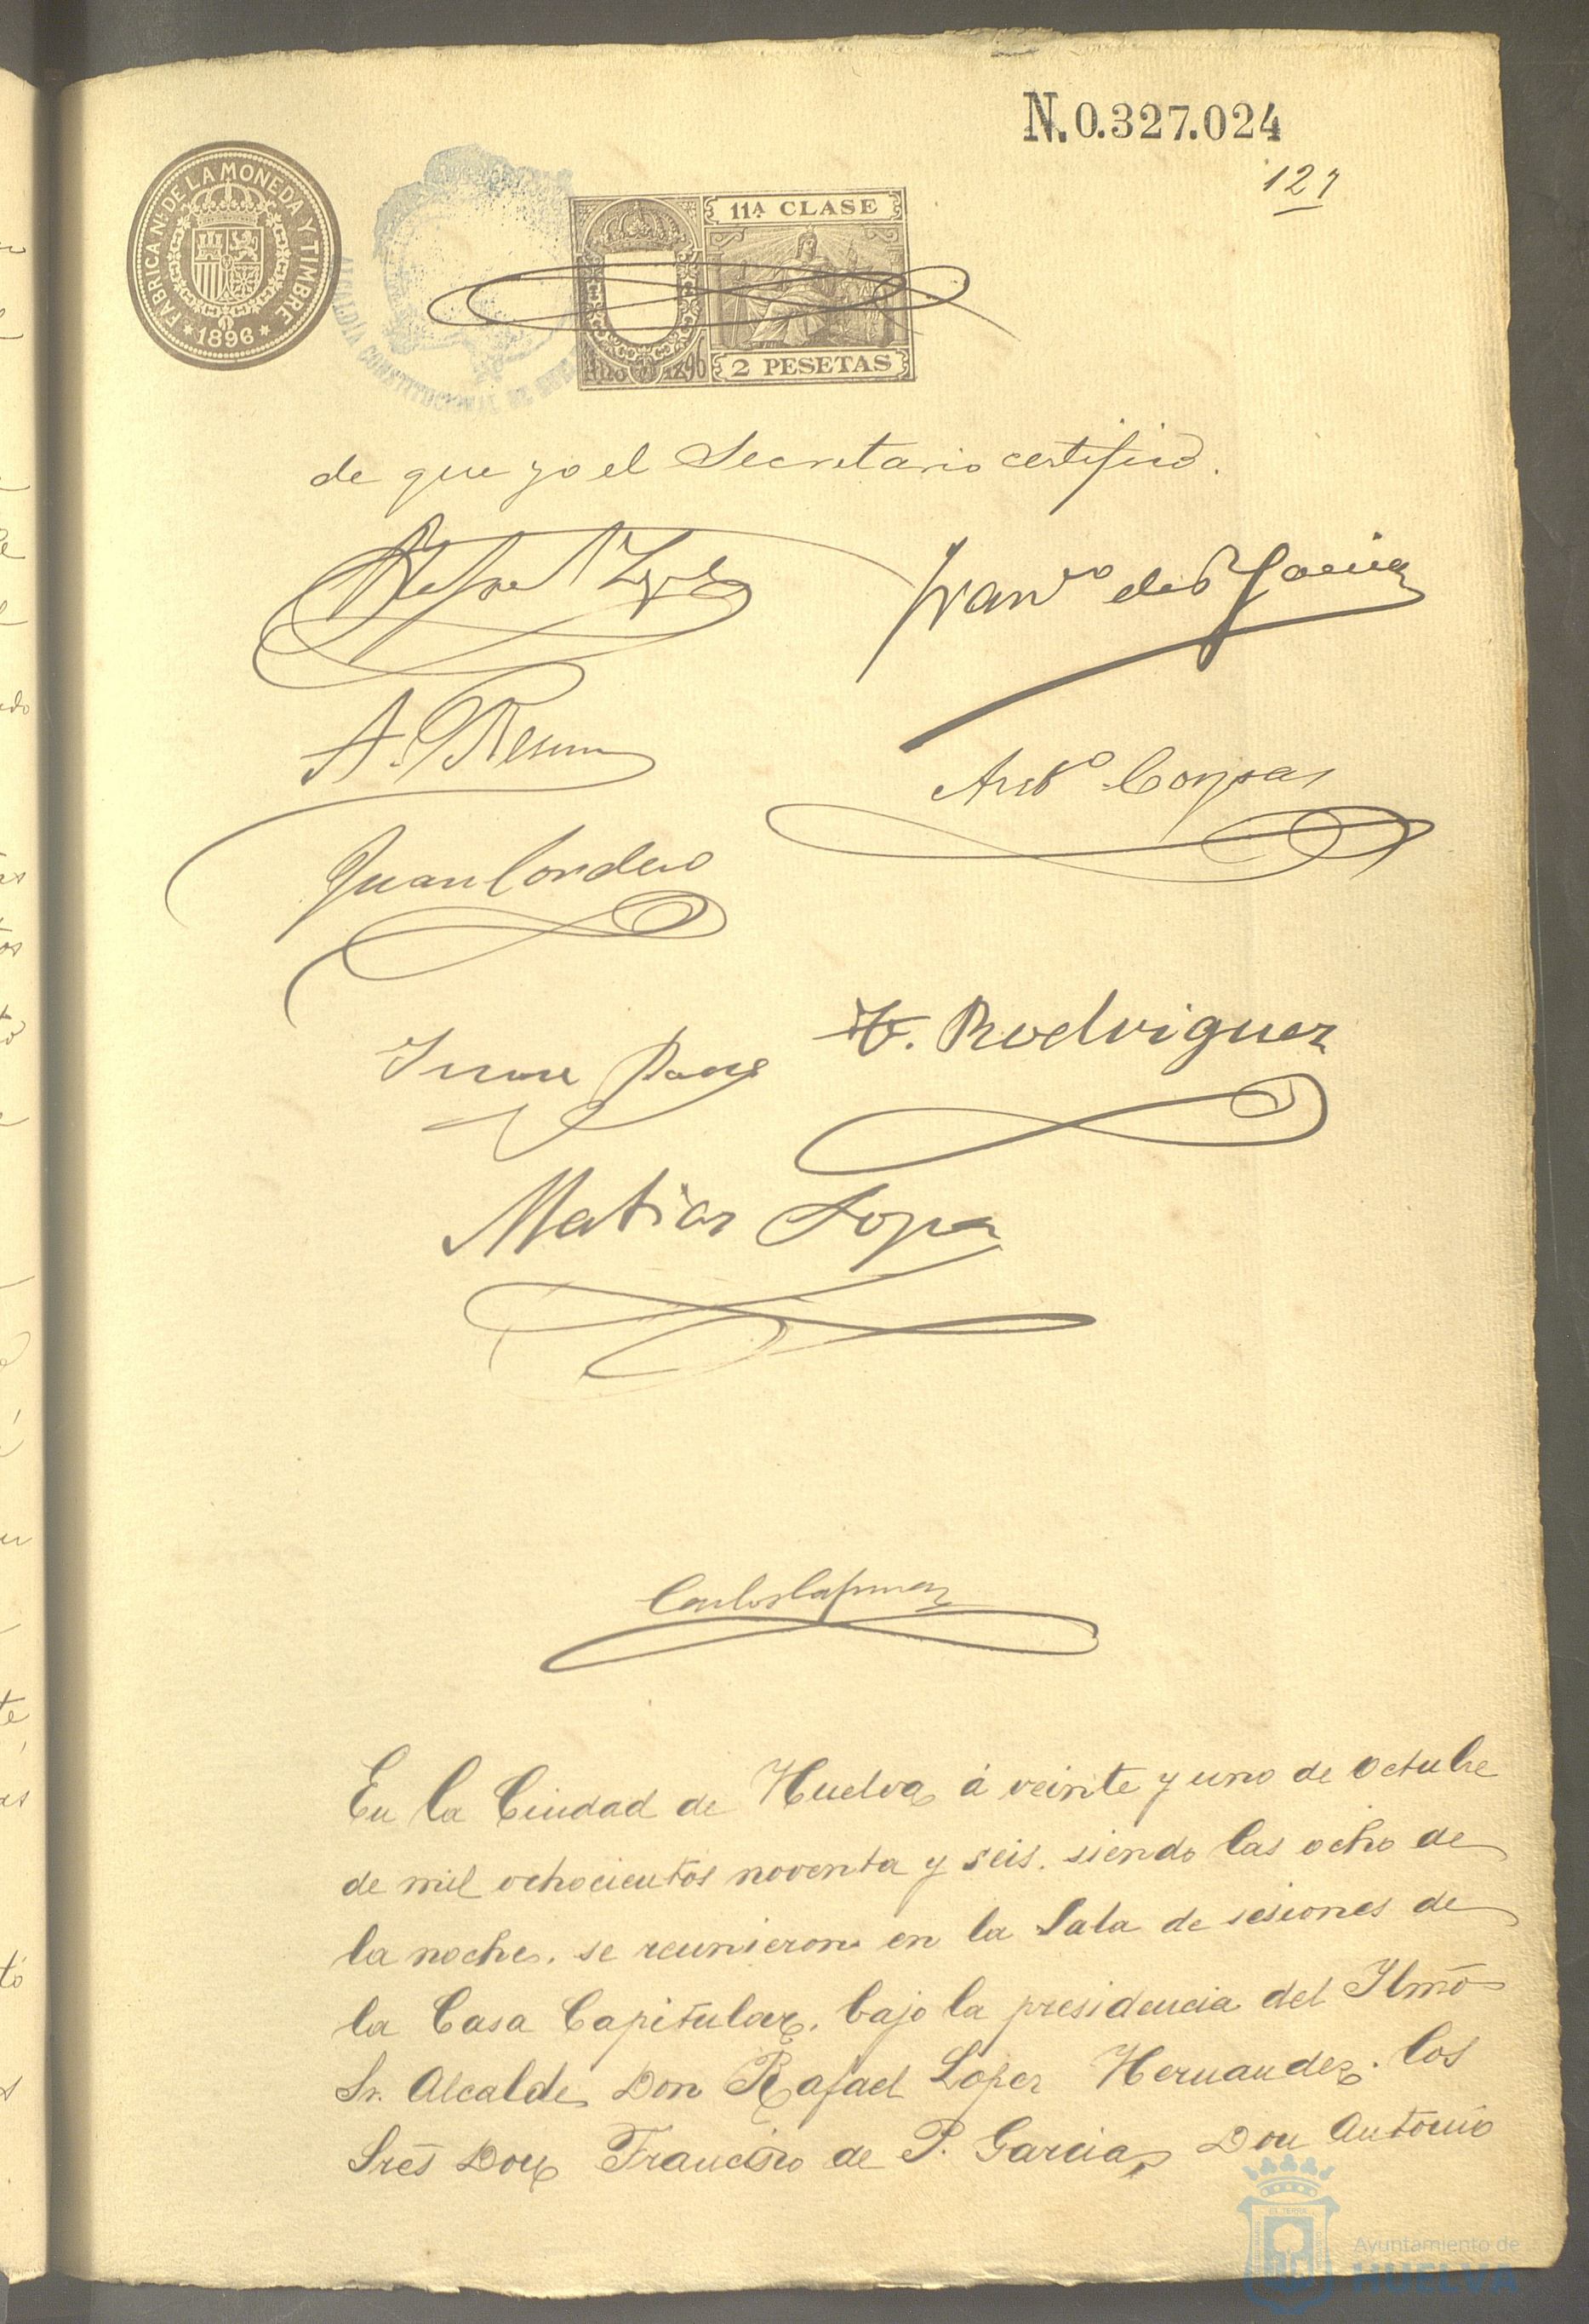 N. 0.327.024
127
FABRICA NL. DE LA MONEDA Y TIMBRE
* 1896 *
ALCALDIA CONSTITUCIONAL DE
11ª CLASE
Año 1896
2 PESETAS
de que yo el Secretario certifico.
Rafael Lopez
Franco de P Garcia
A.
Anto Corpas
Juan Cordero
V. Rodriguez
Matias Lopez
Carlos
En la Ciudad de Huelva á veinte y uno de octubre
de mil ochocientos noventa y seis. siendo las ocho de
la noche. se reunieron en la Sala de sesiones de
la Casa Capitular. bajo la presidencia del Ylmo
Sr. Alcalde Don Rafael Lopez Hernandez. los
Sres Don Francisco de P. Garcia, Don Antonio
Ayuntamiento de
HUELVA